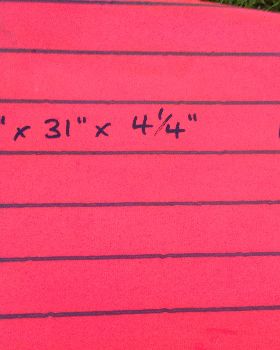 " x 31" x 4 1/4"